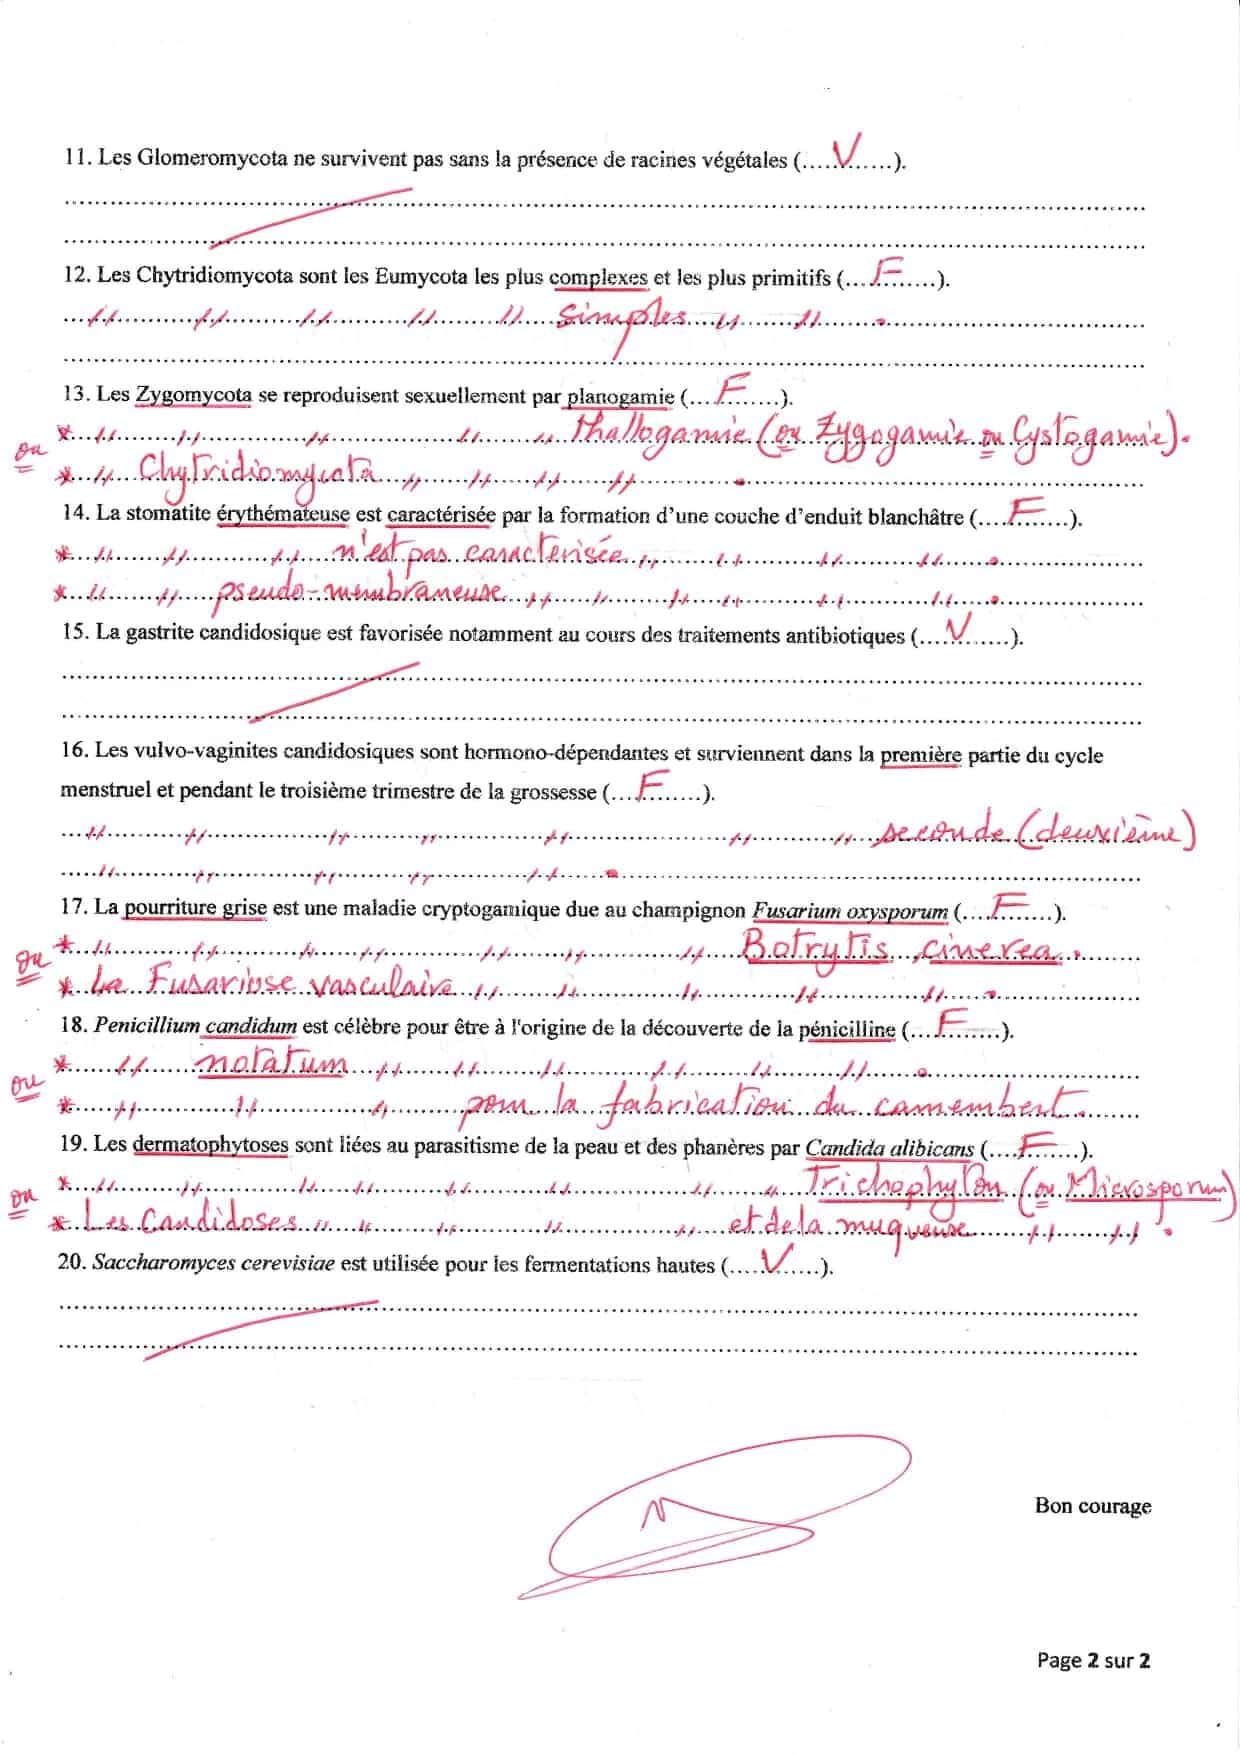 11. Les Glomeromycota ne survivent pas sans la présence de racines végétales (.....V......).
12. Les Chytridiomycota sont les Eumycota les plus complexes et les plus primitifs (...F........).
...//...//...//...//...// simples...//...//....
13. Les Zygomycota se reproduisent sexuellement par planogamie (...F........).
*...//...//...//...//...// thallogamie (ou Zygogamie ou Cystogamie).
ou
*...// Chytridiomycota //...//...//...//....
14. La stomatite érythémateuse est caractérisée par la formation d'une couche d'enduit blanchâtre (....F.......).
*...//...//...// n'est pas caractérisée...//...//...//...//....
*...//...// pseudo-membraneuse...//...//...//...//...//...//....
15. La gastrite candidosique est favorisée notamment au cours des traitements antibiotiques (....V.......).
16. Les vulvo-vaginites candidosiques sont hormono-dépendantes et surviennent dans la première partie du cycle
menstruel et pendant le troisième trimestre de la grossesse (...F........).
...//...//...//...//...//...//...// seconde (deuxième)
...//...//...//...//...//....
17. La pourriture grise est une maladie cryptogamique due au champignon Fusarium oxysporum (....F.......).
*...//...//...//...//...//...//...// Botrytis cinerea.
ou
* La Fusariose vasculaire...//...//...//...//...//....
18. Penicillium candidum est célèbre pour être à l'origine de la découverte de la pénicilline (....F.......).
*...// notatum...//...//...//...//...//...//....
ou
*...//...//...// pour la fabrication du camembert.
19. Les dermatophytoses sont liées au parasitisme de la peau et des phanères par Candida alibicans (....F.......).
*...//...//...//...//...//...//...//...// Trichophyton (ou Microsporum)
ou
* Les Candidoses...//...//...//...//...// et de la muqueuse...//...//.
20. Saccharomyces cerevisiae est utilisée pour les fermentations hautes (.....V.....).
Bon courage
Page 2 sur 2